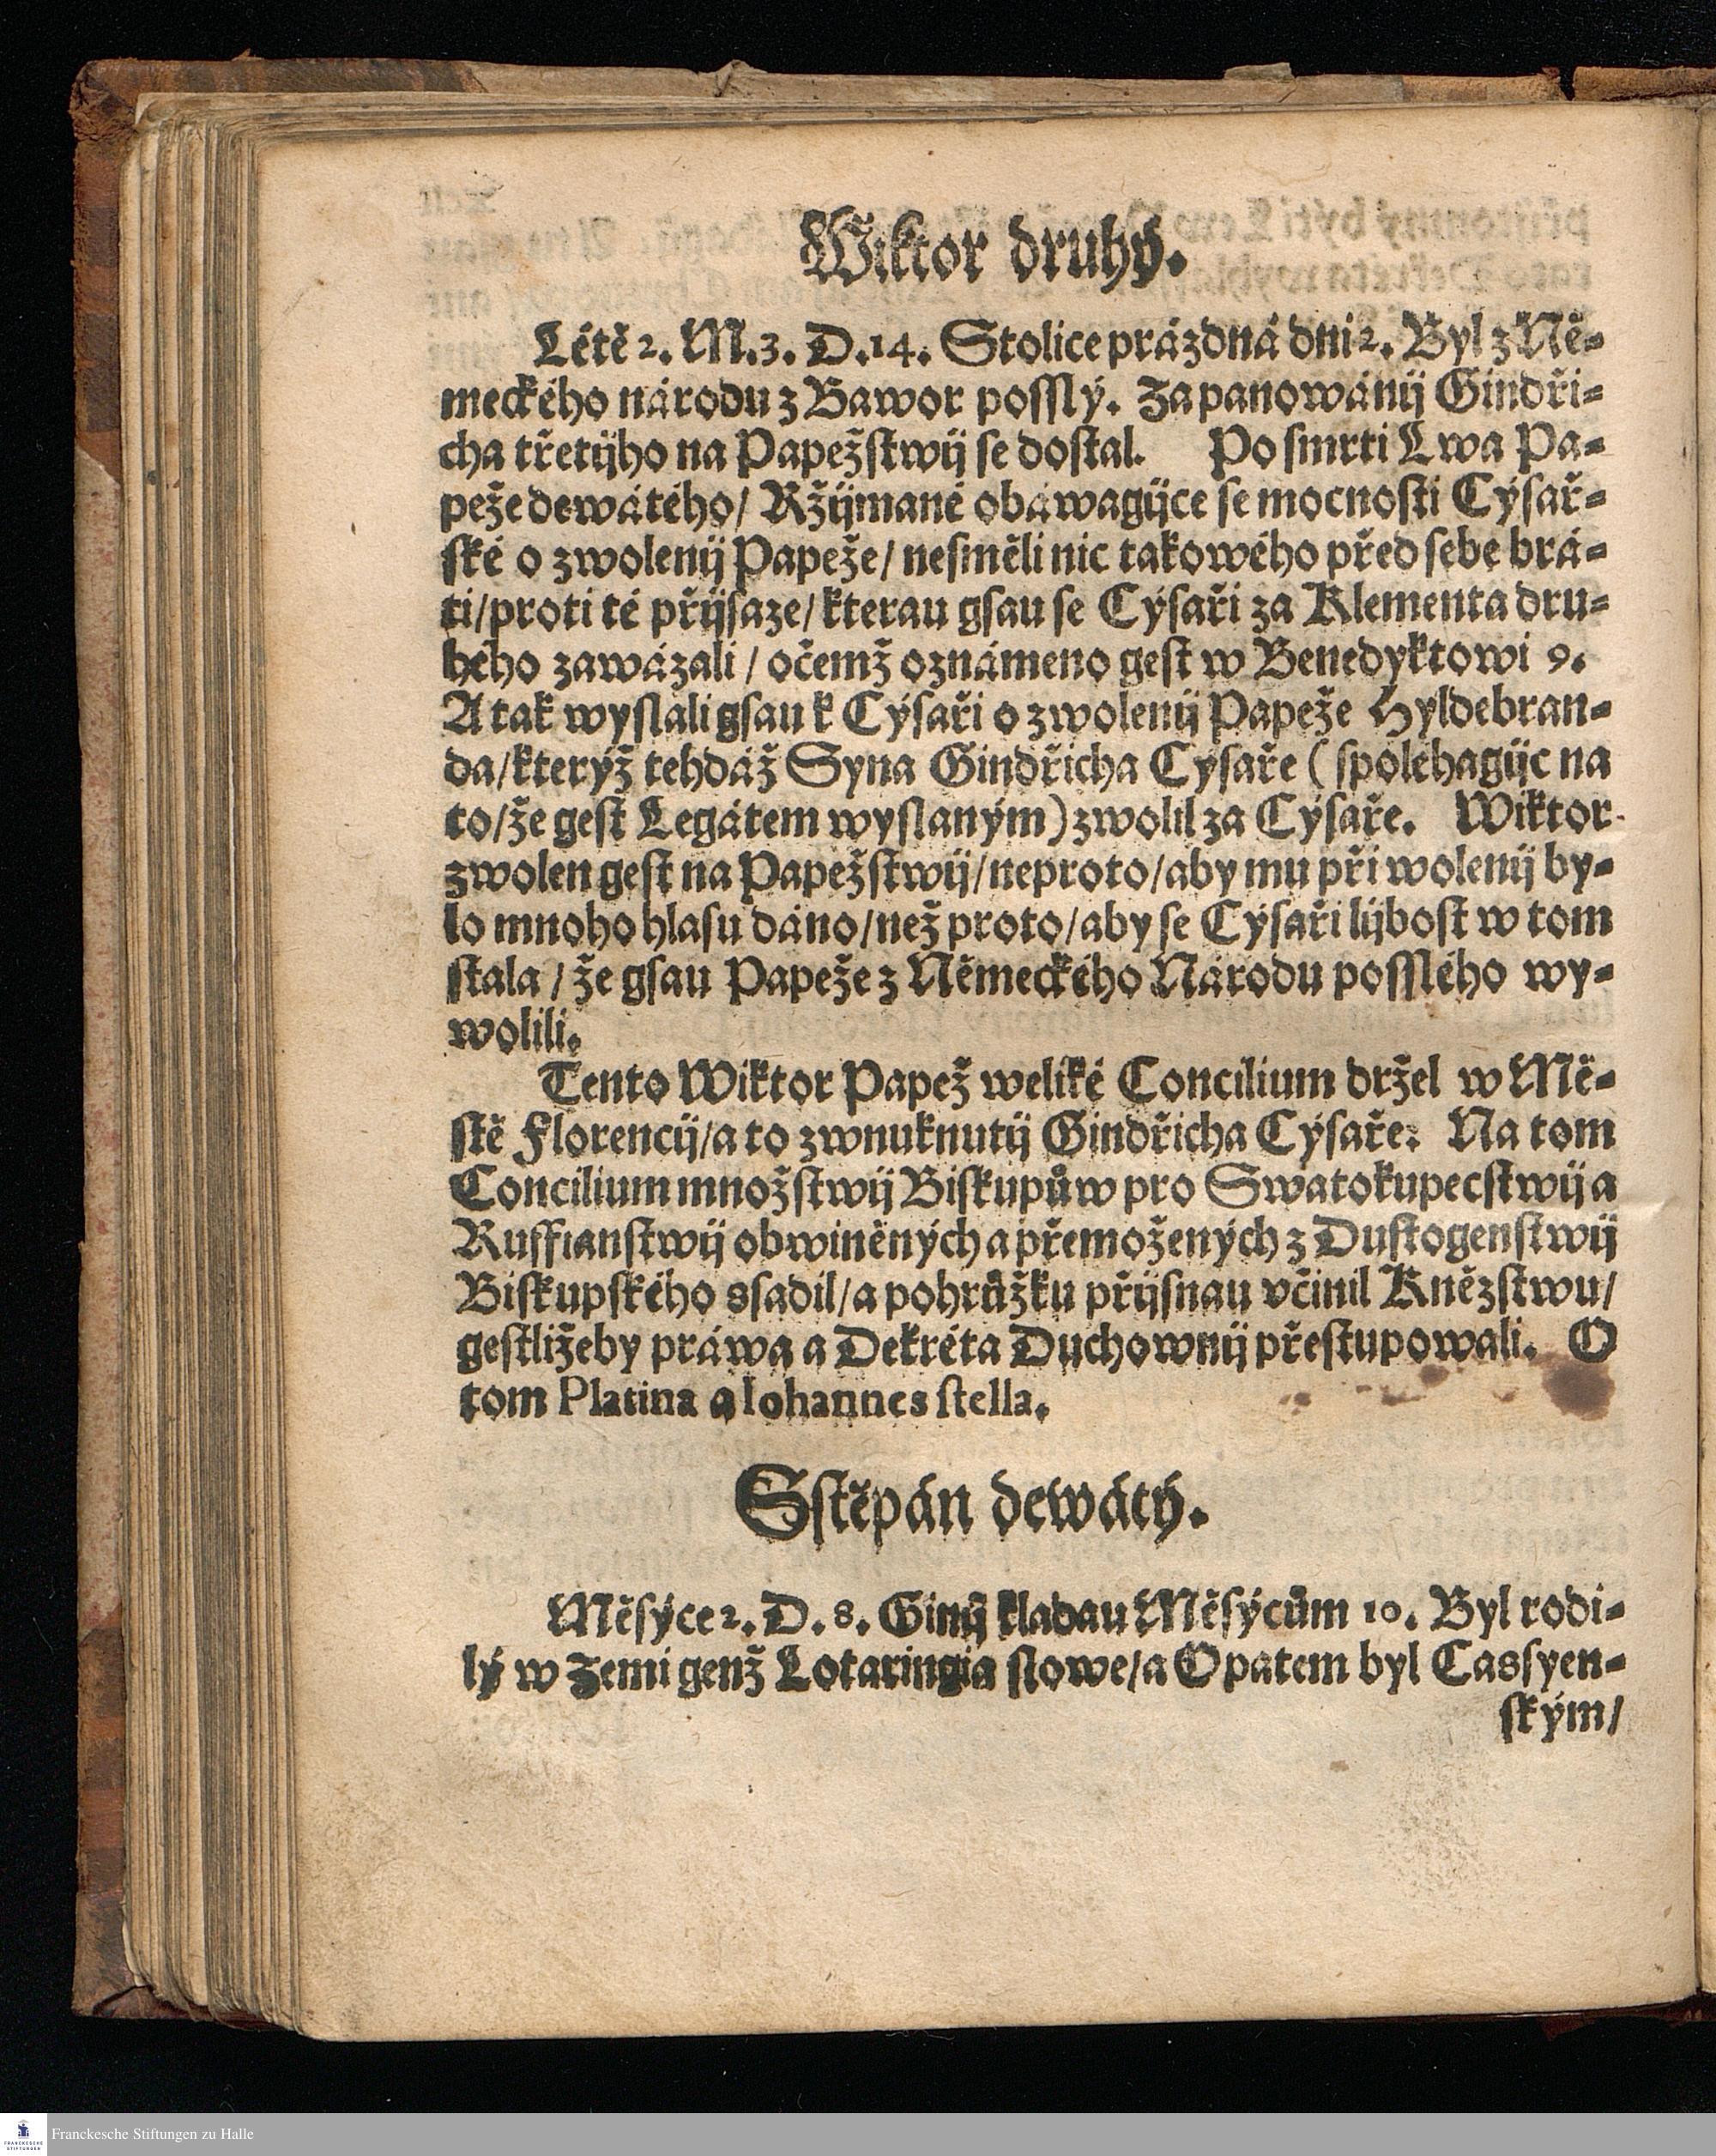 Wiktor druhý.
Létě 2. M.3. D.14. Stolice prázdná dni 2. Byl z Ně⸗
meckého národu z Bawor possslý. Za panowánij Gindři⸗
cha třetijho na Papežstwij se dostal. Po smrti Lwa Pa⸗
peže dewátého/ Ržijmané obáwagijce se mocnosti Cýsař⸗
ské o zwolenij Papeže/ nesměli nic takowého před sebe brá⸗
ti/proti té přijsaze/kterau gsau se Cýsaři za Klementa dru⸗
hého zawázali / očemž oznámeno gest w Benedyktowi 9.
A tak wyslali gsau k Cýsaři o zwolenij Papeže Hyldebran⸗
da/kterýž tehdáž Syna Gindřicha Cýsaře ( spoléhagijc na
to/že gest Legátem wyslaným) zwolil za Cýsaře. Wiktor
zwolen gest na Papežstwij/neproto/aby mu při wolenij by⸗
lo mnoho hlasu dáno/než proto/aby se Cýsaři lijbost w tom
stala / že gsau Papeže z Německého Národu posslého wy⸗
wolili.
Tento Wiktor Papež weliké Concilium držel w Mě⸗
stě Florencij/a to zwnuknutij Gindřicha Cýsaře: Na tom
Concilium množstwij Biskupůw pro Swatokupecstwij a
Ruffianstwij obwiněných a přemožených z Dustogenstwij
Biskupského ssadil/a pohrůžku přijsnau včinil Kněžstwu/
gestližeby práwa a Dekréta Duchownij přestupowali. O
tom Platina a Iohannes stella.
Sstěpán dewátý.
Měsýce 2. D. 8. Ginij kladau Měsýcům 10. Byl rodi⸗
lý w Zemi genž Lotaringia slowe/a Opatem byl Cassyen⸗
ským/
Franckesche Stiftungen zu Halle
FRANCKESCHE
STIFTUNGEN